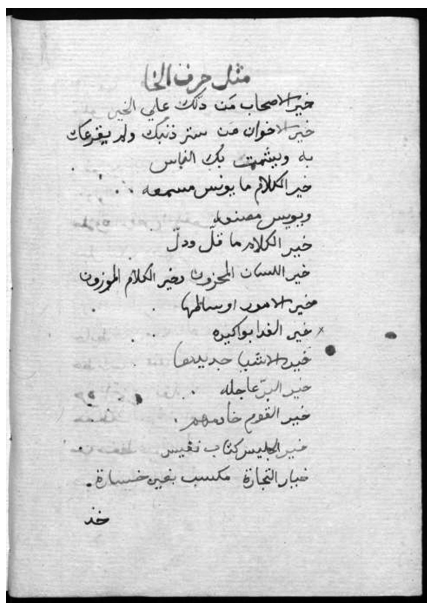 مثل حرف الخا
خير الاصحاب من دلك علي الخير
خير الاخوان من ستر ذنبك ولم يقرعك
به ويشمت بك الناس
خير الكلام ما يونس مسمعه
ويويس مصنعه
خير الكلام ما قل ودلّ
خير اللسان المخزون وخير الكلام الموزون
خير الامور اوساطها
خير الغدا بواكيره
خير الاشيا جديدها
خير البرّ عاجله
خير القوم خادمهم
خير الجليس كتاب نفيس
خيار التجارة مكسب بغير خسارة
خذ